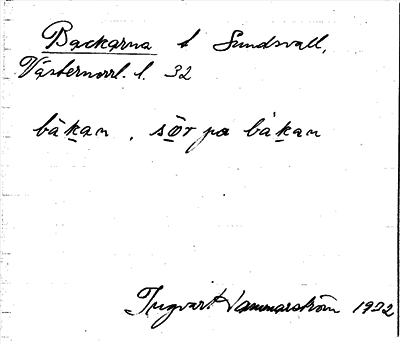 Backarna t Sundsvall,
Västernorrl. l. 32
båkan, sör pa båkan
Ingvar Hammarström 1932